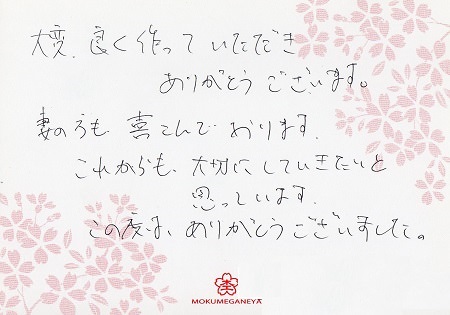 大変、良く作っていただき
ありがとうございます。
妻の方も 喜こんでおります。
これからも、大切にしていきたいと
思っています。
この度は、ありがとうございました。
杢
MOKUMEGANEYA